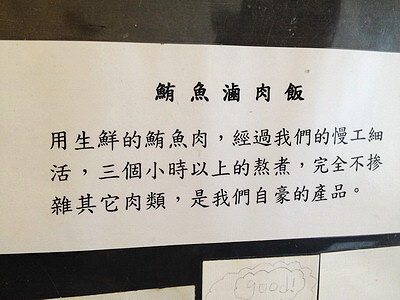 鮪魚滷肉飯
用生鮮的鮪魚肉，經過我們的慢工細
活，三個小時以上的熬煮，完全不摻
雜其它肉類，是我們自豪的產品。
good!